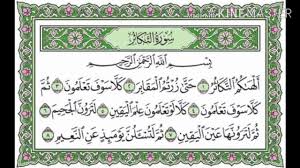 سُورَةُ التَّكَاثُرِ
بِسْمِ اللَّهِ الرَّحْمَٰنِ الرَّحِيمِ
أَلْهَاكُمُ التَّكَاثُرُ ١ حَتَّىٰ زُرْتُمُ الْمَقَابِرَ ٢ كَلَّا سَوْفَ تَعْلَمُونَ ٣ ثُمَّ
كَلَّا سَوْفَ تَعْلَمُونَ ٤ كَلَّا لَوْ تَعْلَمُونَ عِلْمَ الْيَقِينِ ٥ لَتَرَوُنَّ الْجَحِيمَ ٦
ثُمَّ لَتَرَوُنَّهَا عَيْنَ الْيَقِينِ ٧ ثُمَّ لَتُسْأَلُنَّ يَوْمَئِذٍ عَنِ النَّعِيمِ ٨